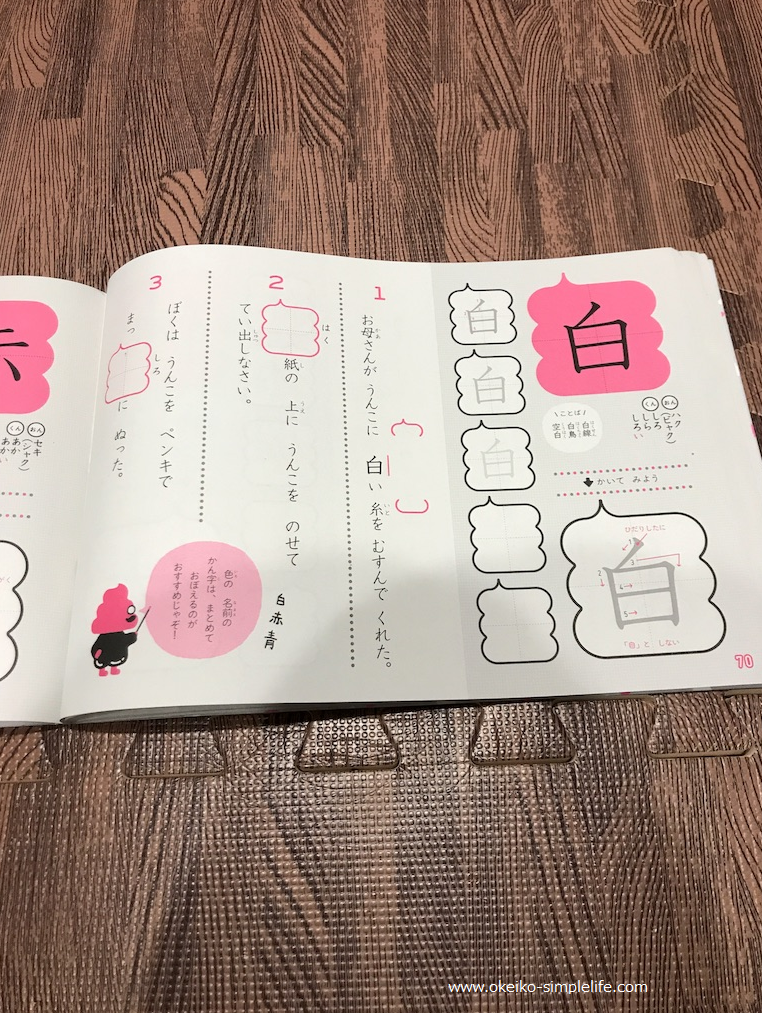 白
おん
ハク
(ビャク)
くん
しろ
しら
しろい
\ことば/
白線
はくせん
白鳥
はくちょう
空白
くうはく
かいて みよう
ひだり したに
1
2
3
4→
5→
白
「自」と しない
70
白
白
白
1
お母さんが うんこに 白い 糸を むすんで くれた。
かあ
いと
2
はく
紙の 上に うんこを のせて
し
うえ
てい出しなさい。
しゅつ
白 赤 青
3
ぼくは うんこを ペンキで
まっ
しろ
に ぬった。
色の 名前の
いろ
なまえ
かん字は、まとめて
じ
おぼえるのが
おすすめじゃぞ!
おん
セキ
(シャク)
くん
あか
あかい
www.okeiko-simplelife.com